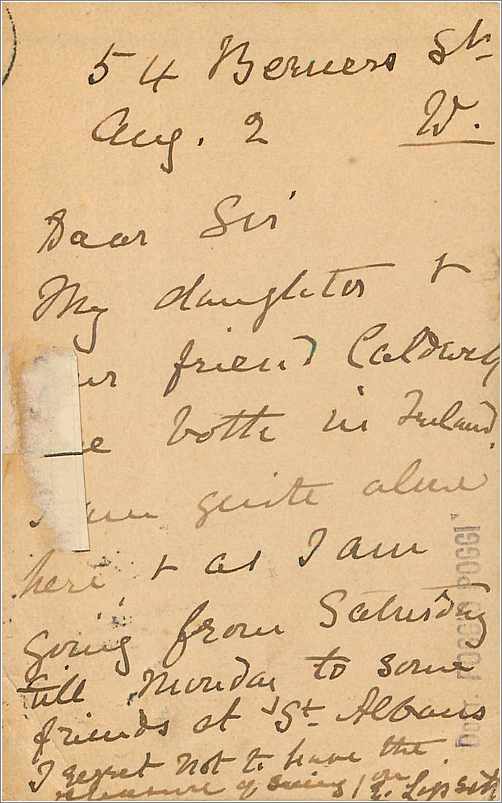 54 Berners St.
Aug. 2 W.
Dear Sir
My daughter &
ur friend Caldwell
e both in Ireland.
am quite alone
here, & as I am
going from Saturday
till Monday to some
friends at St. Albans
I regret not to have the
pleasure of seeing you
POGGI